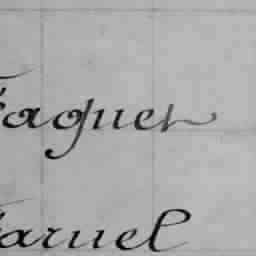 Faquet
Faruel